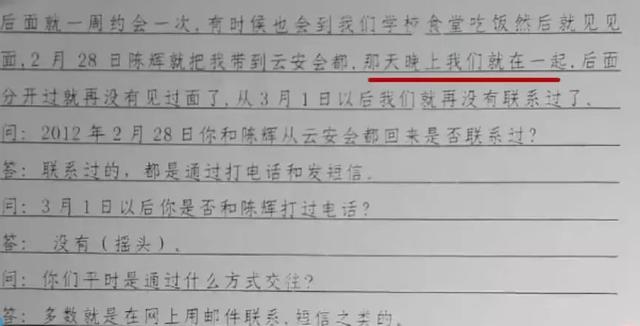 后面就一周约会一次，有时候也会到我们学校食堂吃饭然后就见见
面，2月28日陈辉就把我带到云安会都，那天晚上我们就在一起，后面
分开过就再没有见过面了，从3月1日以后我们就再没有联系过了。
问：2012年2月28日你和陈辉从云安会都回来是否联系过？
答：联系过的，都是通过打电话和发短信。
问：3月1日以后你是否和陈辉打过电话？
答： 没有（摇头）。
问：你们平时是通过什么方式交往？
答：多数就是在网上用邮件联系，短信之类的。